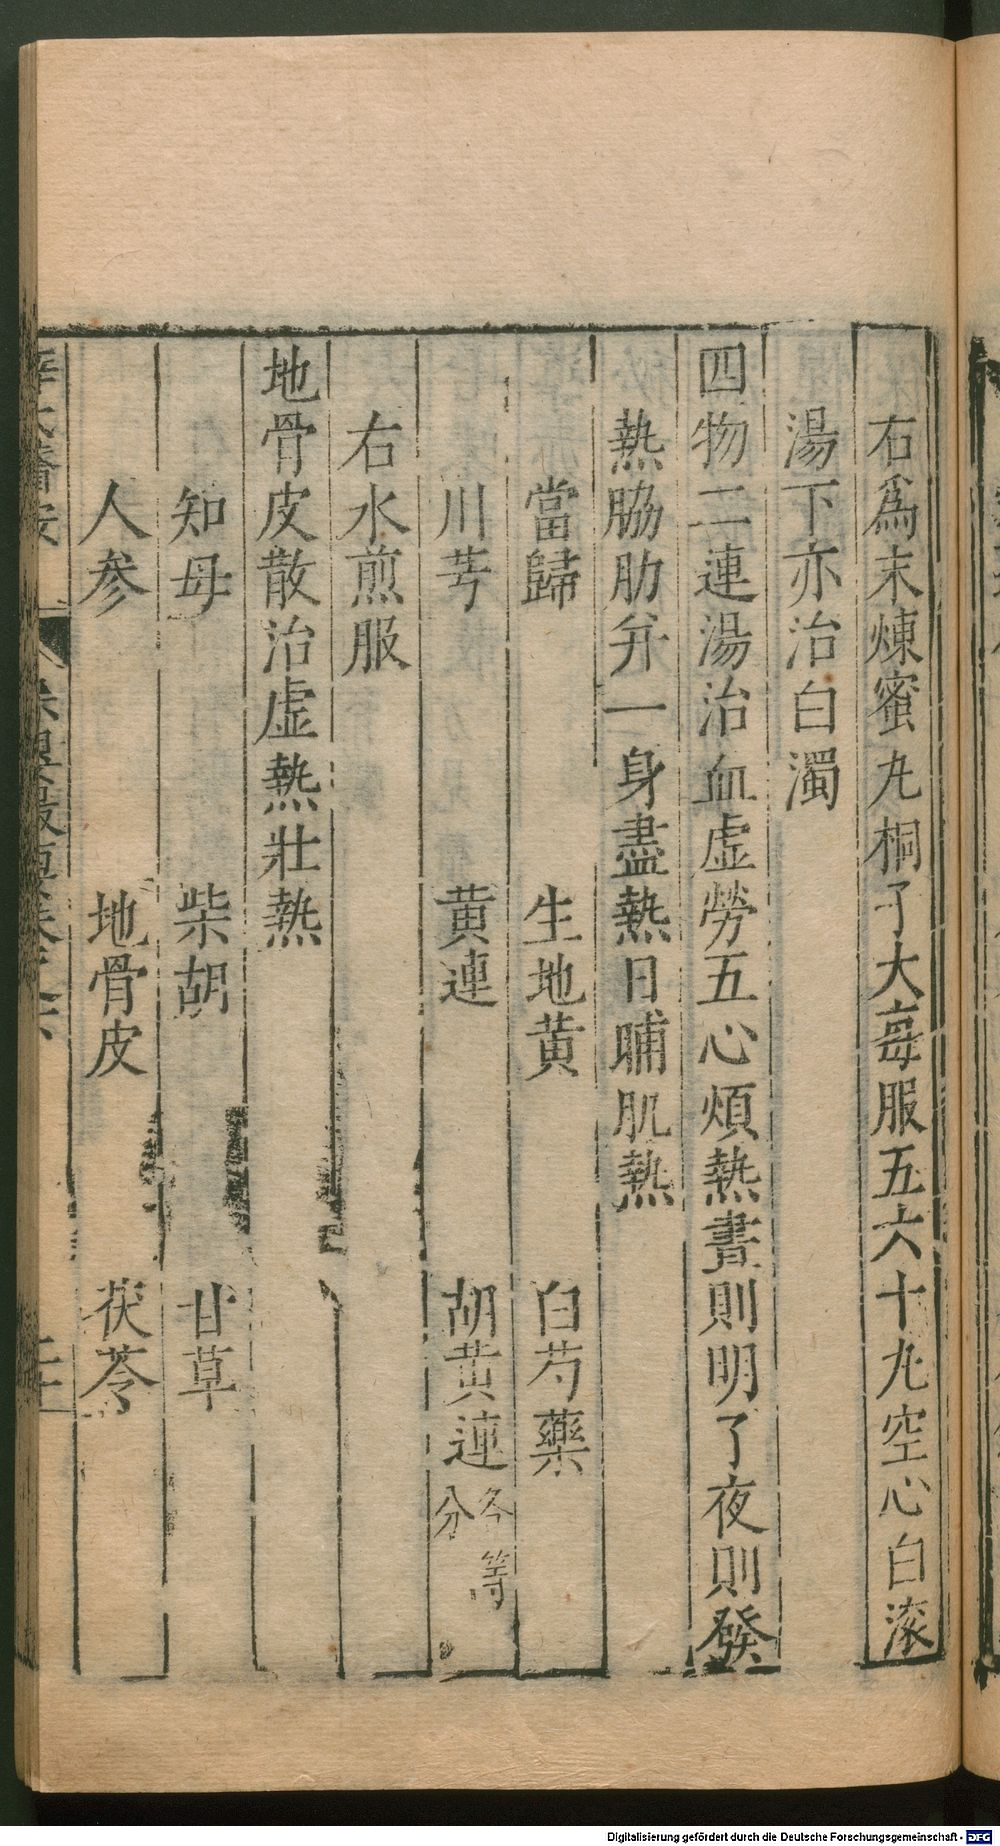 右為末煉蜜丸桐子大每服五六十丸空心白滚
湯下亦治白濁
四物二連湯治血虛勞五心煩熱晝則明了夜則發
熱脇肋并一身盡熱日晡肌熱
當歸　生地黃　白芍藥
川芎　黃連　胡黃連各等分
右水煎服
地骨皮散治虛熱壯熱
知母　柴胡　甘草
人參　地骨皮　茯苓
Digitalisierung gefördert durch die Deutsche Forschungsgemeinschaft - DFG